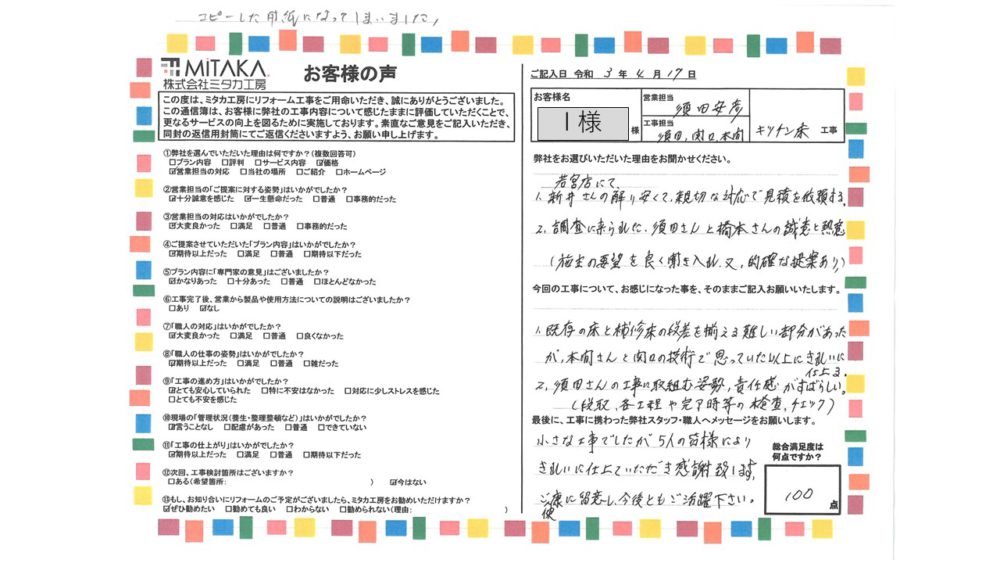 コピーした用紙になってしまいました。
MiTAKA
株式会社ミタカ工房
お客様の声
この度は、ミタカ工房にリフォーム工事をご用命いただき、誠にありがとうございました。
この通信簿は、お客様に弊社の工事内容について感じたままに評価していただくことで、
更なるサービスの向上を図るために実施しております。素直なご意見をご記入いただき、
同封の返信用封筒にてご返信くださいますよう、お願い申し上げます。
①弊社を選んでいただいた理由は何ですか?(複数回答可)
□プラン内容 □評判 □サービス内容 ☑価格
☑営業担当の対応 □当社の場所 □ご紹介 □ホームページ
②営業担当の「ご提案に対する姿勢」はいかがでしたか?
☑十分誠意を感じた ☑一生懸命だった □普通 □事務的だった
③営業担当の対応はいかがでしたか?
☑大変良かった □満足 □普通 □事務的だった
④ご提案させていただいた「プラン内容」はいかがでしたか?
☑期待以上だった □満足 □普通 □期待以下だった
⑤プラン内容に「専門家の意見」はございましたか?
☑かなりあった □十分あった □普通 □ほとんどなかった
⑥工事完了後、営業から製品や使用方法についての説明はございましたか?
□あり ☑なし
⑦「職人の対応」はいかがでしたか?
☑大変良かった □満足 □普通 □良くなかった
⑧「職人の仕事の姿勢」はいかがでしたか?
☑期待以上だった □満足 □普通 □雑だった
⑨「工事の進め方」はいかがでしたか?
☑とても安心していられた □特に不安はなかった □対応に少しストレスを感じた
□とても不安を感じた
⑩現場の「管理状況(養生・整理整頓など)」はいかがでしたか?
☑言うことなし □配慮があった □普通 □できていない
⑪「工事の仕上がり」はいかがでしたか?
☑期待以上だった □満足 □普通 □期待以下だった
⑫次回、工事検討箇所はございますか?
□ある(希望箇所: ) ☑今はない
⑬もし、お知り合いにリフォームのご予定がございましたら、ミタカ工房をお勧めいただけますか?
☑ぜひ勧めたい □勧めても良い □わからない □勧められない(理由: )
ご記入日 令和 3 年 4 月 17 日
お客様名
I様
様
営業担当
須田安彦
工事担当
須田、関口、本間
キッチン床 工事
弊社をお選びいただいた理由をお聞かせください。
若宮店にて
1. 新井さんの解り安くて、親切な対応で見積を依頼する。
2. 調査に来られた、須田さんと橋本さんの誠意と熱意
(施主の要望を良く聞き入れ、又、的確な提案あり)
今回の工事について、お感じになった事を、そのままご記入お願いいたします。
1. 既存の床と補修床の段差を揃える難しい部分があった
が、本間さんと関口の技術で思っていた以上にきれいに
仕上る。
2. 須田さんの工事に取組む姿勢、責任感がすばらしい。
(段取、各工程や完了時等の検査、チェック)
最後に、工事に携わった弊社スタッフ・職人へメッセージをお願いします。
小さな工事でしたが5人の皆様により
きれいに仕上ていただき感謝致します。
ご健康に留意し今後ともご活躍下さい。
総合満足度は
何点ですか?
100 点